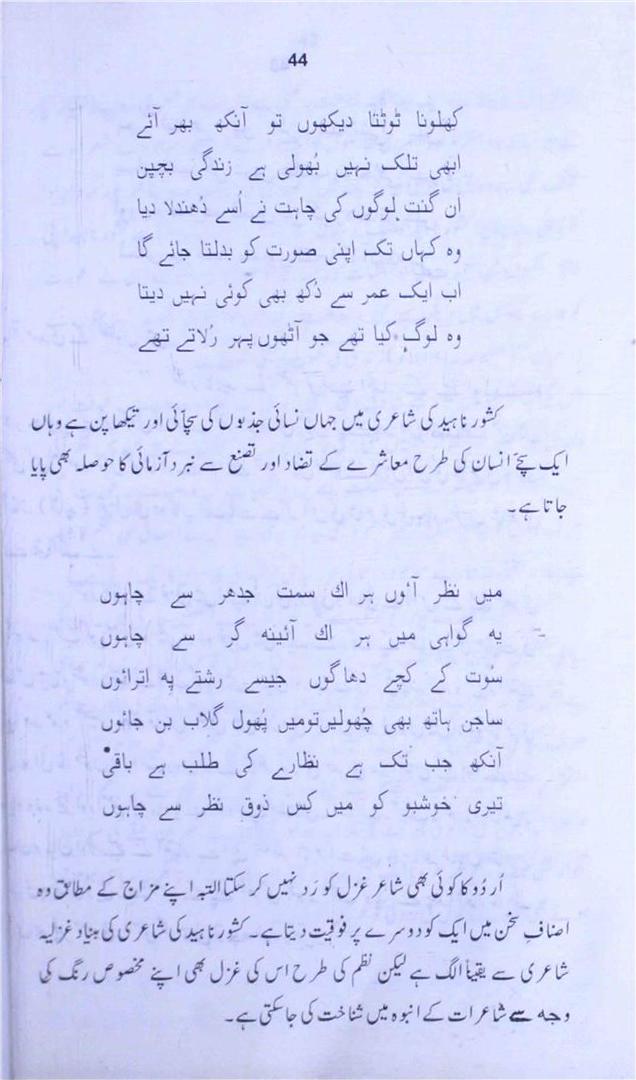 44
کھلونا ٹوٹتا دیکھوں تو آنکھ بھر آئے
ابھی تلک نہیں بُھولی ہے زندگی بچپن
ان گنت لوگوں کی چاہت نے اُسے دُھندلا دیا
وہ کہاں تک اپنی صورت کو بدلتا جائے گا
اب ایک عمر سے دُکھ بھی کوئی نہیں دیتا
وہ لوگ کیا تھے جو آٹھوں پہر رُلاتے تھے
کشور ناہید کی شاعری میں جہاں نسائی جذبوں کی سچّائی اور تیکھا پن ہے وہاں
ایک سچّے انسان کی طرح معاشرے کے تضاد اور تصنع سے نبرد آزمائی کا حوصلہ بھی پایا
جاتا ہے۔
میں نظر آئوں ہر اك سمت جدھر سے چاہوں
یہ گواہی میں ہر اك آئینہ گر سے چاہوں
سُوت کے کچے دھاگوں جیسے رشتے پہ اِترائوں
ساجن ہاتھ بھی چُھولیں تو میں پُھول گلاب بن جائوں
آنکھ جب تک ہے نظارے کی طلب ہے باقی
تیری خوشبو کو میں کس ذوقِ نظر سے چاہوں
اُردو کا کوئی بھی شاعر غزل کو رَد نہیں کر سکتا البتہ اپنے مزاج کے مطابق وہ
اصنافِ سخن میں ایک کو دوسرے پر فوقیت دیتا ہے۔ کشور ناہید کی شاعری کی بنیاد غزلیہ
شاعری سے یقیناً الگ ہے لیکن نظم کی طرح اس کی غزل بھی اپنے مخصوص رنگ کی
وجہ سے شاعرات کے انبوہ میں شناخت کی جاسکتی ہے۔